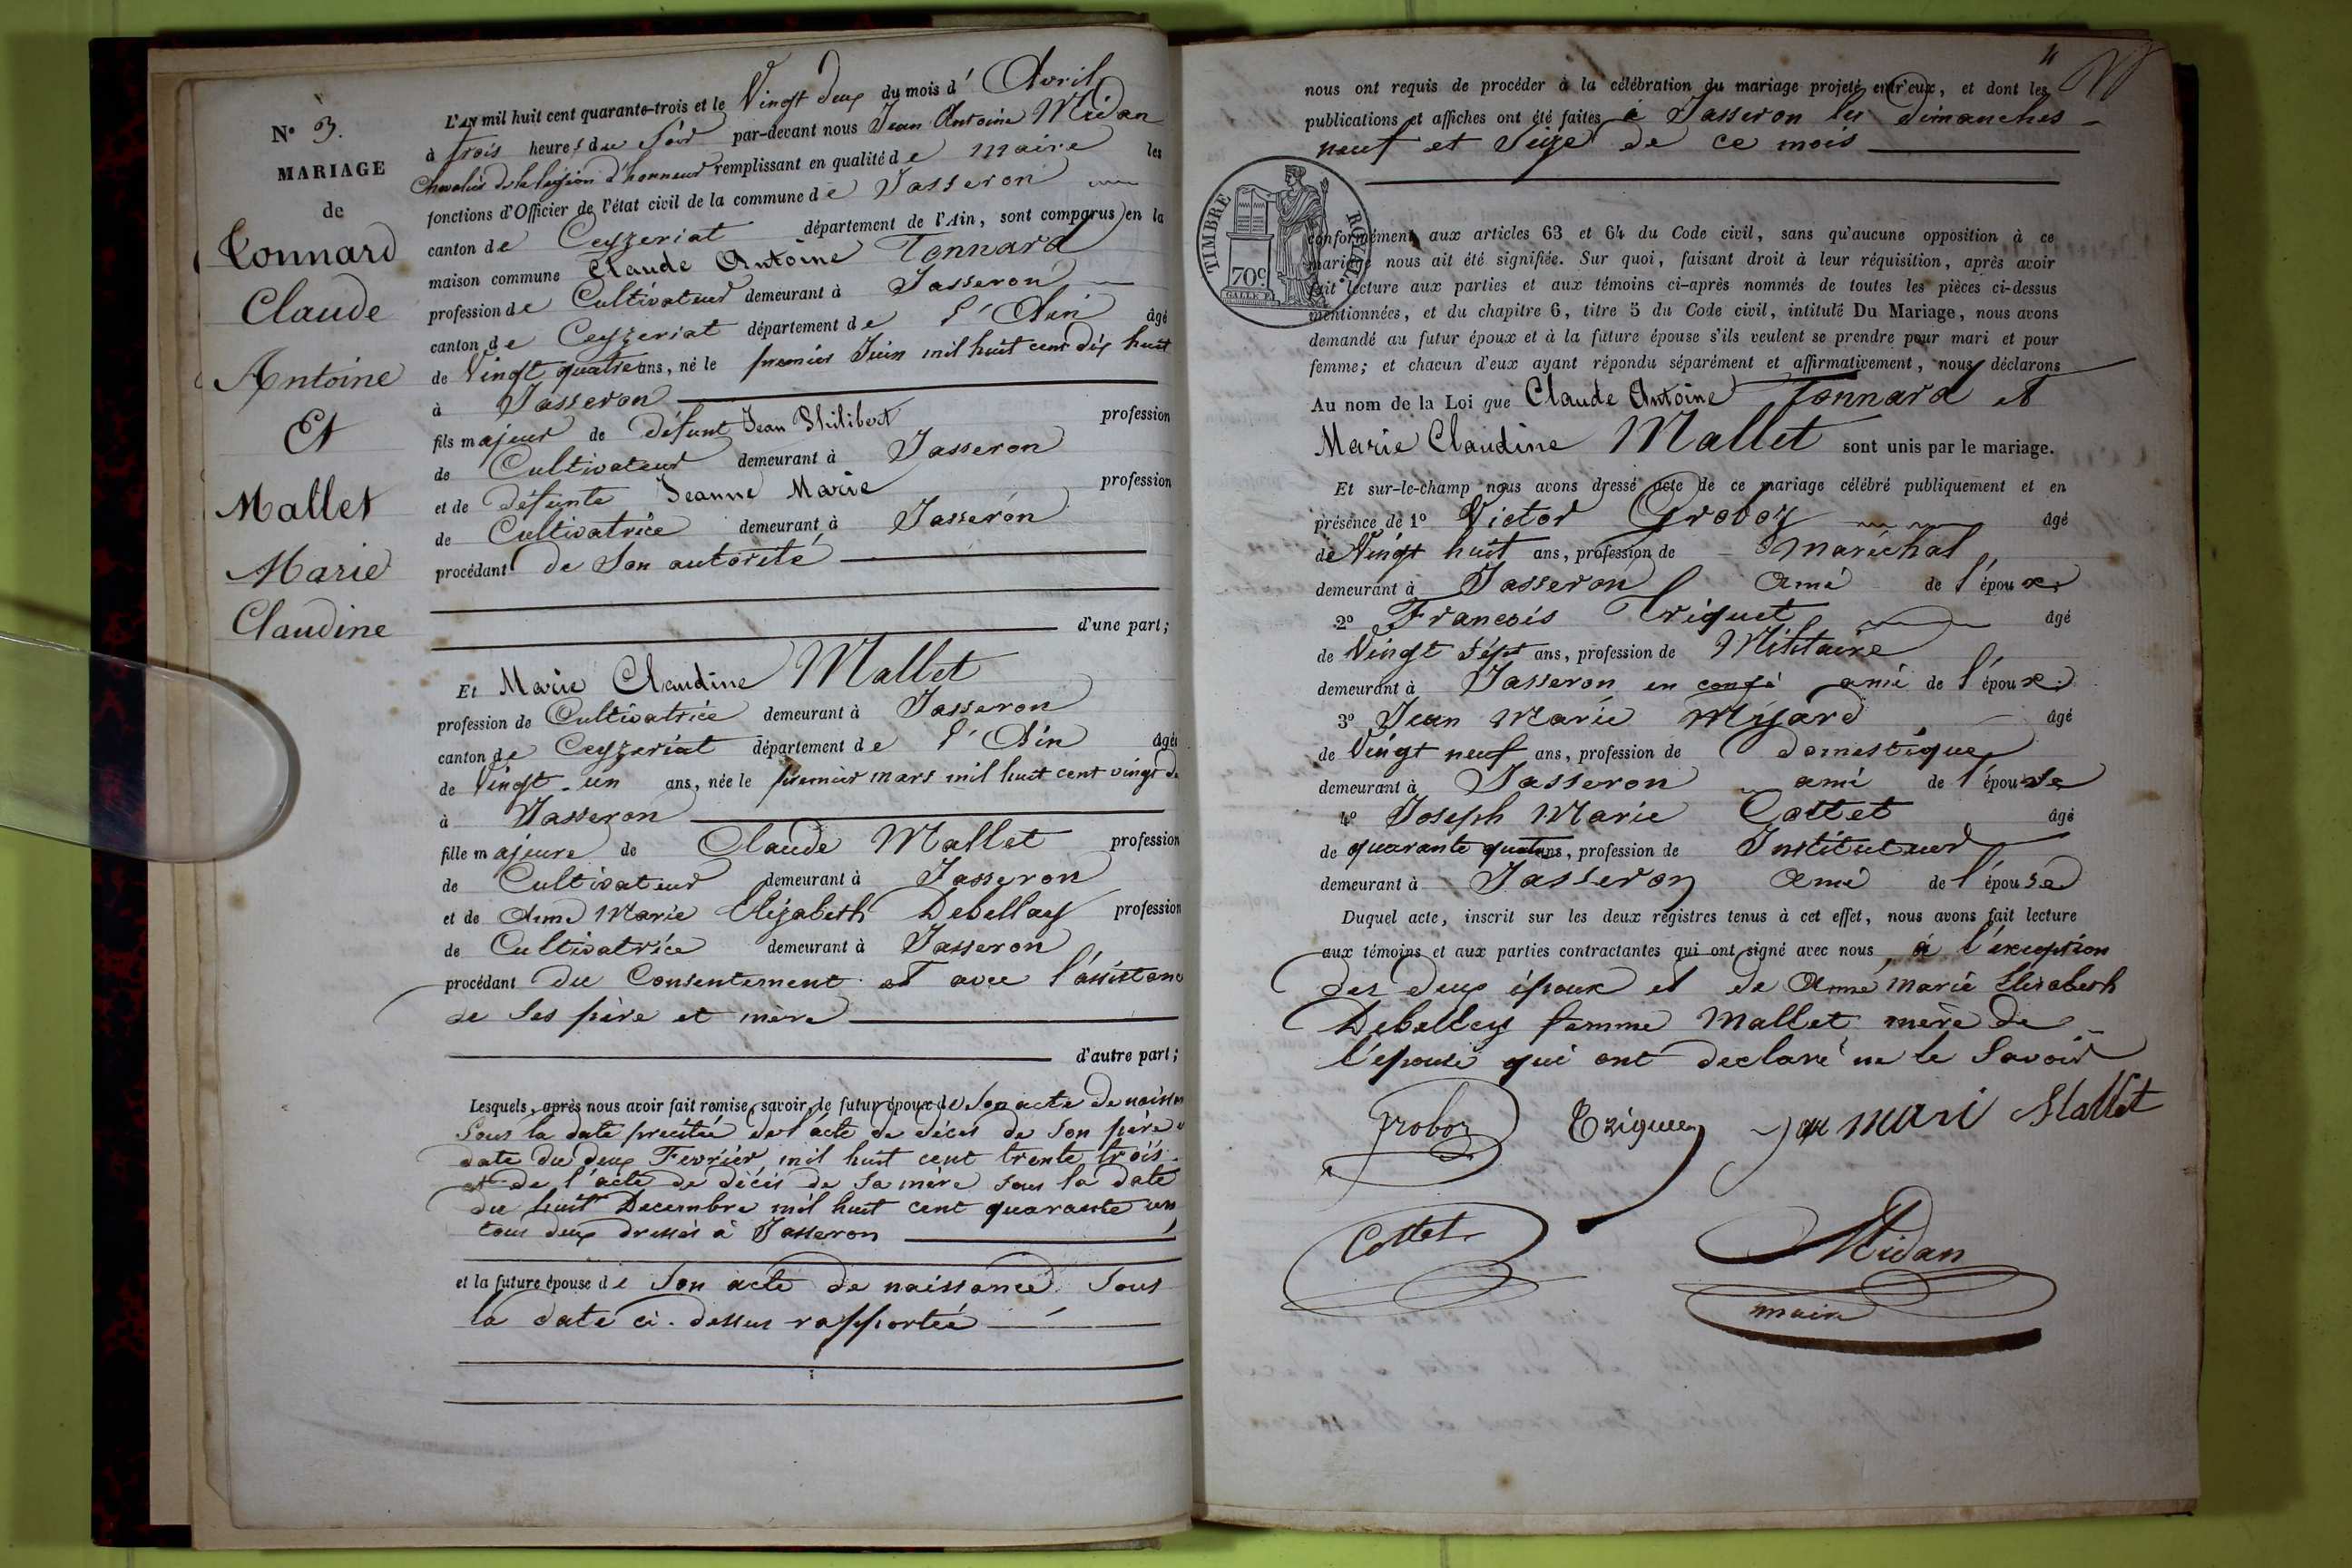 N° 3.
MARIAGE
de
Tonnard
Claude
Antoine
Et
Mallet
Marie
Claudine
L'AN mil huit cent quarante-trois et le Vingt deux du mois d'Avril
à trois heures du Soir par-devant nous Jean Antoine Midan
Chevalier de la légion d'honneur remplissant en qualité de maire les
fonctions d'Officier de l'état civil de la commune de Jasseron
canton de Ceyzeriat département de l'Ain, sont comparus en la
maison commune Claude Antoine Tonnard
profession de Cultivateur demeurant à Jasseron
canton de Ceyzeriat département de l'Ain âgé
de Vingt quatre ans, né le premier Juin mil huit cent dix huit
à Jasseron
fils majeur de défunt Jean Philibert profession
de Cultivateur demeurant à Jasseron
et de défunte Jeanne Marie profession
de Cultivatrice demeurant à Jasseron
procédant de Son autorité
d'une part;
Et Marie Claudine Mallet
profession de Cultivatrice demeurant à Jasseron
canton de Ceyzeriat département de l'Ain âgée
de Vingt-un ans, née le premier mars mil huit cent vingt
à Jasseron
fille majeure de Claude Mallet profession
de Cultivateur demeurant à Jasseron
et de Anne Marie Elizabeth Debellay profession
de Cultivatrice demeurant à Jasseron
procédant du Consentement et avec l'assistance
de Ses père et mère
d'autre part;
Lesquels, après nous avoir fait remise, savoir, le futur époux de Son acte de
Sous la date précitée de l'acte de décès de Son père
date du deux Fevrier mil huit cent trente trois
et de l'acte de décès de Sa mère sous la date
du huit Decembre mil huit cent quarante un
tous deux dressés à Jasseron
et la future épouse de Son acte de naissance Sous
la date ci-dessus rapportée
4
nous ont requis de procéder à la célébration du mariage projeté entr'eux, et dont les
publications et affiches ont été faites à Jasseron les dimanches
neuf et Seize de ce mois
TIMBRE ROYAL
70c.
conformément aux articles 63 et 64 du Code civil, sans qu'aucune opposition à ce
mariage nous ait été signifiée. Sur quoi, faisant droit à leur réquisition, après avoir
fait lecture aux parties et aux témoins ci-après nommés de toutes les pièces ci-dessus
mentionnées, et du chapitre 6, titre 5 du Code civil, intitulé Du Mariage, nous avons
demandé au futur époux et à la future épouse s'ils veulent se prendre pour mari et pour
femme; et chacun d'eux ayant répondu séparément et affirmativement, nous déclarons
Au nom de la Loi que Claude Antoine Tonnard et
Marie Claudine Mallet sont unis par le mariage.
Et sur-le-champ nous avons dressé acte de ce mariage célébré publiquement et en
présence de 1° Victor Groboz âgé
de Vingt huit ans, profession de maréchal
demeurant à Jasseron Ami de l'époux
2° Francois Triquet âgé
de Vingt Sept ans, profession de Militaire
demeurant à Jasseron en congé ami de l'époux
3° Jean Marie Migard âgé
de Vingt neuf ans, profession de domestique
demeurant à Jasseron ami de l'épouse
4° Joseph Marie Cottet âgé
de quarante quatre ans, profession de Instituteur
demeurant à Jasseron Ami de l'épouse
Duquel acte, inscrit sur les deux registres tenus à cet effet, nous avons fait lecture
aux témoins et aux parties contractantes qui ont signé avec nous, à l'exception
des deux époux et de Anne marie Elisabeth
Debelley femme Mallet mère de
l'epouse qui ont declaré ne le Savoir
Groboz mari Mallet
Cottet Midan
maire